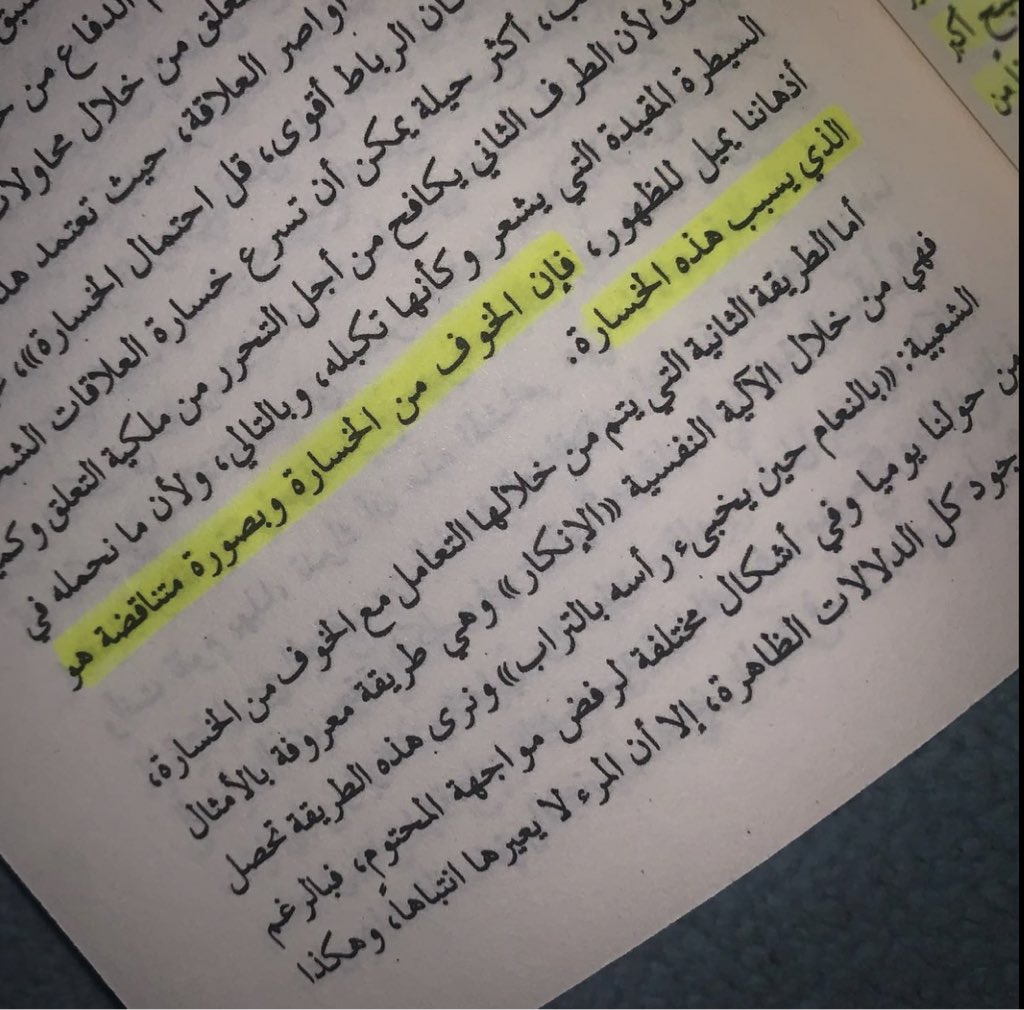 الدفاع من
من خلال محاولات
أواصر العلاقة، حيث تعتمد
الرباط أقوى، قل احتمال الخسارة))،
أكثر حيلة يمكن أن تسرع خسارة العلاقات
لأن الطرف الثاني يكافح من أجل التحرر من ملكية التعلق
السيطرة المقيدة التي يشعر وكأنها تكبله، وبالتالي، ولأن ما نحمله في
أذهاننا يميل للظهور، فإن الخوف من الخسارة وبصورة متناقضة هو
الذي يسبب هذه الخسارة.
أما الطريقة الثانية التي يتم من خلالها التعامل مع الخوف من الخسارة،
فهي من خلال الآلية النفسية ((الإنكار)) وهي طريقة معروفة بالأمثال
الشعبية: ((بالنعام حين يخبىء رأسه بالتراب)) ونرى هذه الطريقة تحصل
من حولنا يوميا وفي أشكال مختلفة لرفض مواجهة المحتوم، فبالرغم
جود كل الدلالات الظاهرة، إلا أن المرء لا يعيرها انتباها، وهكذا
أكبر
من